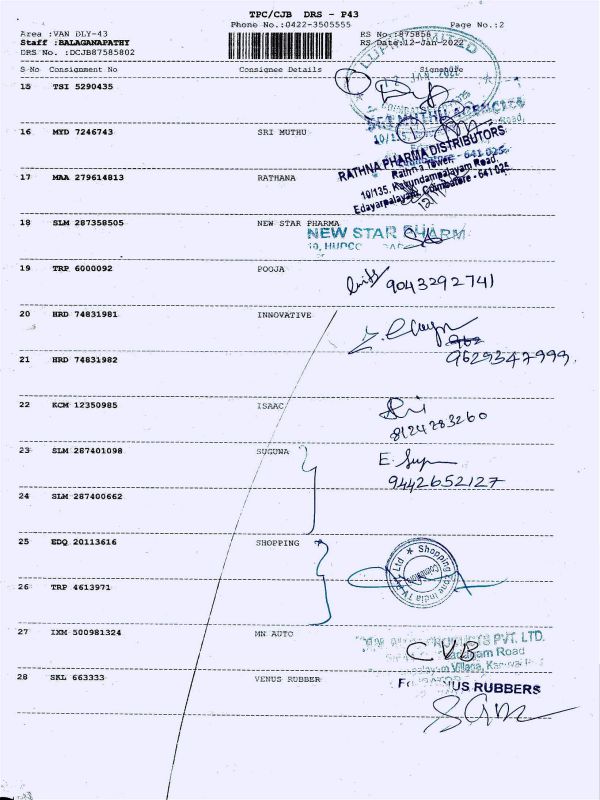 TPC/CJB DRS - P43
Phone No.:0422-3505555 Page No.:2
Area :VAN DLY-43 RS No.:875858
Staff :BALAGANAPATHY RS Date:12-Jan-2022
DRS No. :DCJB87585802
S No Consignment No Consignee Details Signature
15 TSI 5290435
16 MYD 7246743 SRI MUTHU
RATHNA PHARMA DISTRIBUTORS
17 MAA 279614813 RATHANA
Rathna Tower
10/135, Kavundampalayam Road,
Edayarpalayam, Coimbatore - 641 025
18 SLM 287358505 NEW STAR PHARMA
NEW STAR PHARM
10, HUDCO
19 TRP 6000092 POOJA
9043292741
20 HRD 74831981 INNOVATIVE
962
9629347999.
21 HRD 74831982
22 KCM 12350985 ISAAC
8124783260
23 SLM 287401098 SUGUNA
9442652127
24 SLM 287400662
25 EDQ 20113616 SHOPPING
Shopping Zone India TV Pvt Ltd
26 TRP 4613971
27 IXM 500981324 MN AUTO
PVT. LTD.
CVB
Road
28 SKL 663333 VENUS RUBBER
US RUBBERS